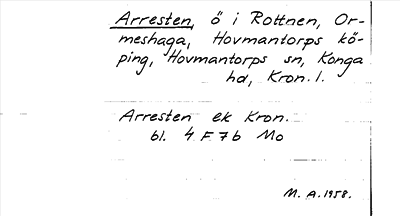 Arresten, ö i Rottnen, Or-
meshaga, Hovmantorps kö-
ping, Hovmantorps sn, Konga
hd, Kron. l.
Arresten ek Kron.
bl. 4 F 7b Mo
M. A. 1958.